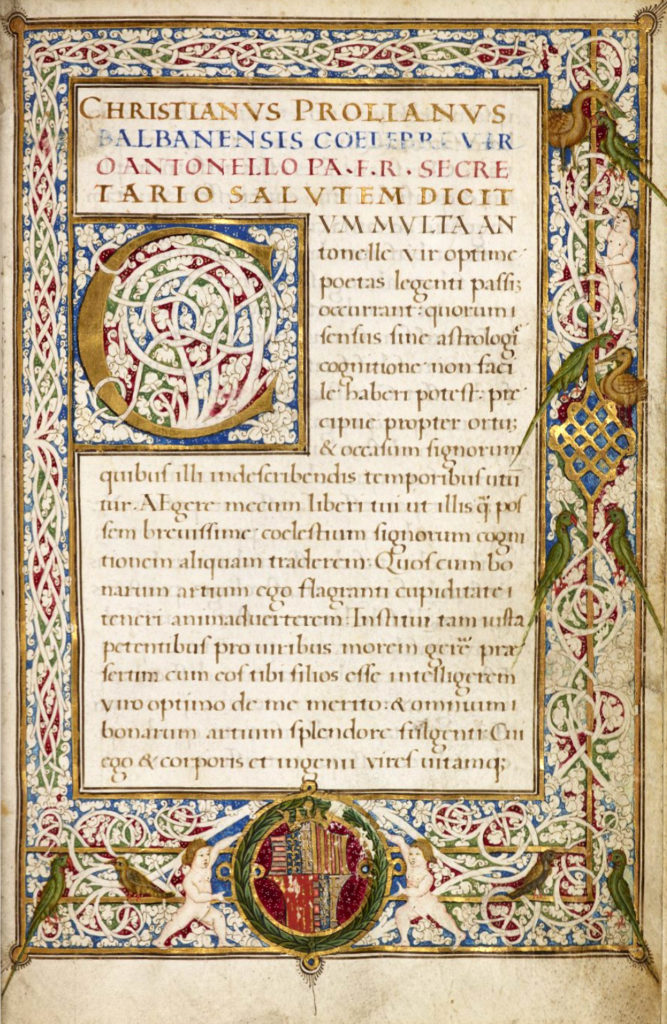 CHRISTIANVS PROLIANVS
BALBANENSIS COELEBRE VIR
O ANTONELLO PA·F·R· SECRE
TARIO SALVTEM DICIT
CVM MVLTA AN
tonelle vir optime
poetas legenti passiꝫ
occurrant: quorum
sensus sine astrologię
cognitione non faci
le haberi potest: prę
cipue propter ortuꝫ
& occasum signorum
quibus illi indescribendis temporibus utū
tur. AEgere mecum liberi tui ut illis q̄ pos
sem brevissime coelestium signorum cogni
tionem aliquam traderem. Quos cum bo
narum artium ego flagranti cupiditate
teneri animadverterem. Institui tam iusta
petentibus pro viribus morem gerē præ
sertim cum eos tibi filios esse intelligerem
viro optimo de me merito: & omnium
bonarum artium splendore fulgenti. Cui
ego & corporis et ingenii vires vitamqꝫ